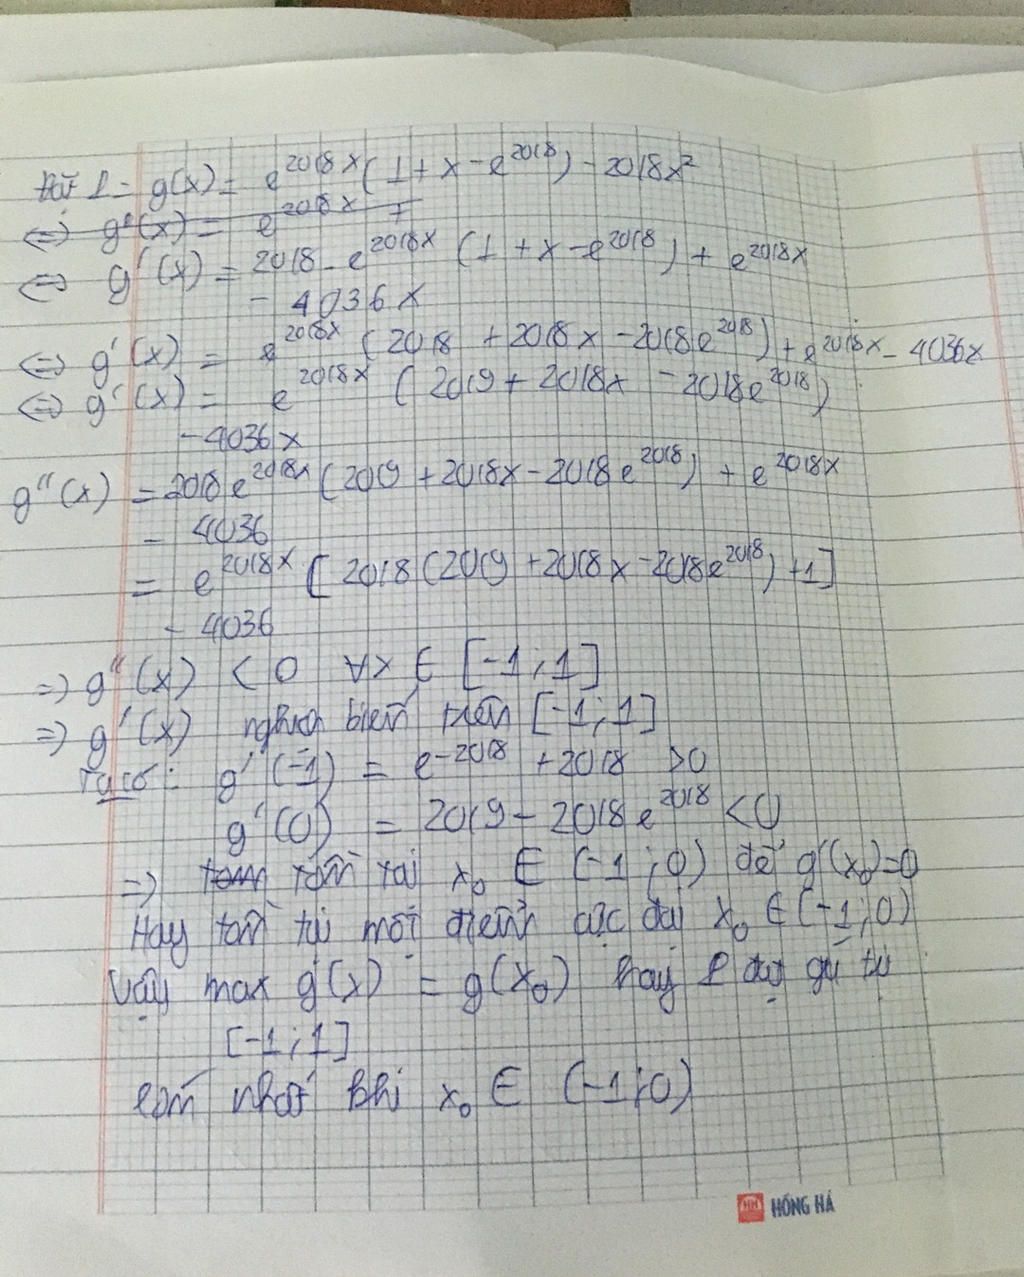 Đặt L = g(x) = e^{2018x}(1 + x - e^{2018}) - 2018x²
⇔ g'(x) = e^{2018x}
⇔ g'(x) = 2018 - e^{2018x} (1 + x - e^{2018}) + e^{2018x}
- 4036x
⇔ g'(x) = e^{2018x} (2018 + 2018x - 2018e^{2018}) + e^{2018x} - 4036x
⇔ g'(x) = e^{2018x} (2019 + 2018x - 2018e^{2018})
- 4036x
g''(x) = 2018e^{2018x} (2019 + 2018x - 2018e^{2018}) + e^{2018x}
- 4036
= e^{2018x} [2018(2019 + 2018x - 2018e^{2018}) + 1]
- 4036
⇒ g''(x) < 0 ∀x ∈ [-1; 1]
⇒ g'(x) nghịch biến trên [-1; 1]
Ta có: g'(-1) = e^{-2018} + 2018 > 0
g'(0) = 2019 - 2018e^{2018} < 0
⇒ tồn tại x₀ ∈ (-1; 0) để g'(x₀) = 0
Hay tồn tại một điểm cực đại x₀ ∈ (-1; 0)
Vậy max g(x) = g(x₀) hay L đạt giá trị
[-1; 1]
lớn nhất khi x₀ ∈ (-1; 0)
HỒNG HÀ